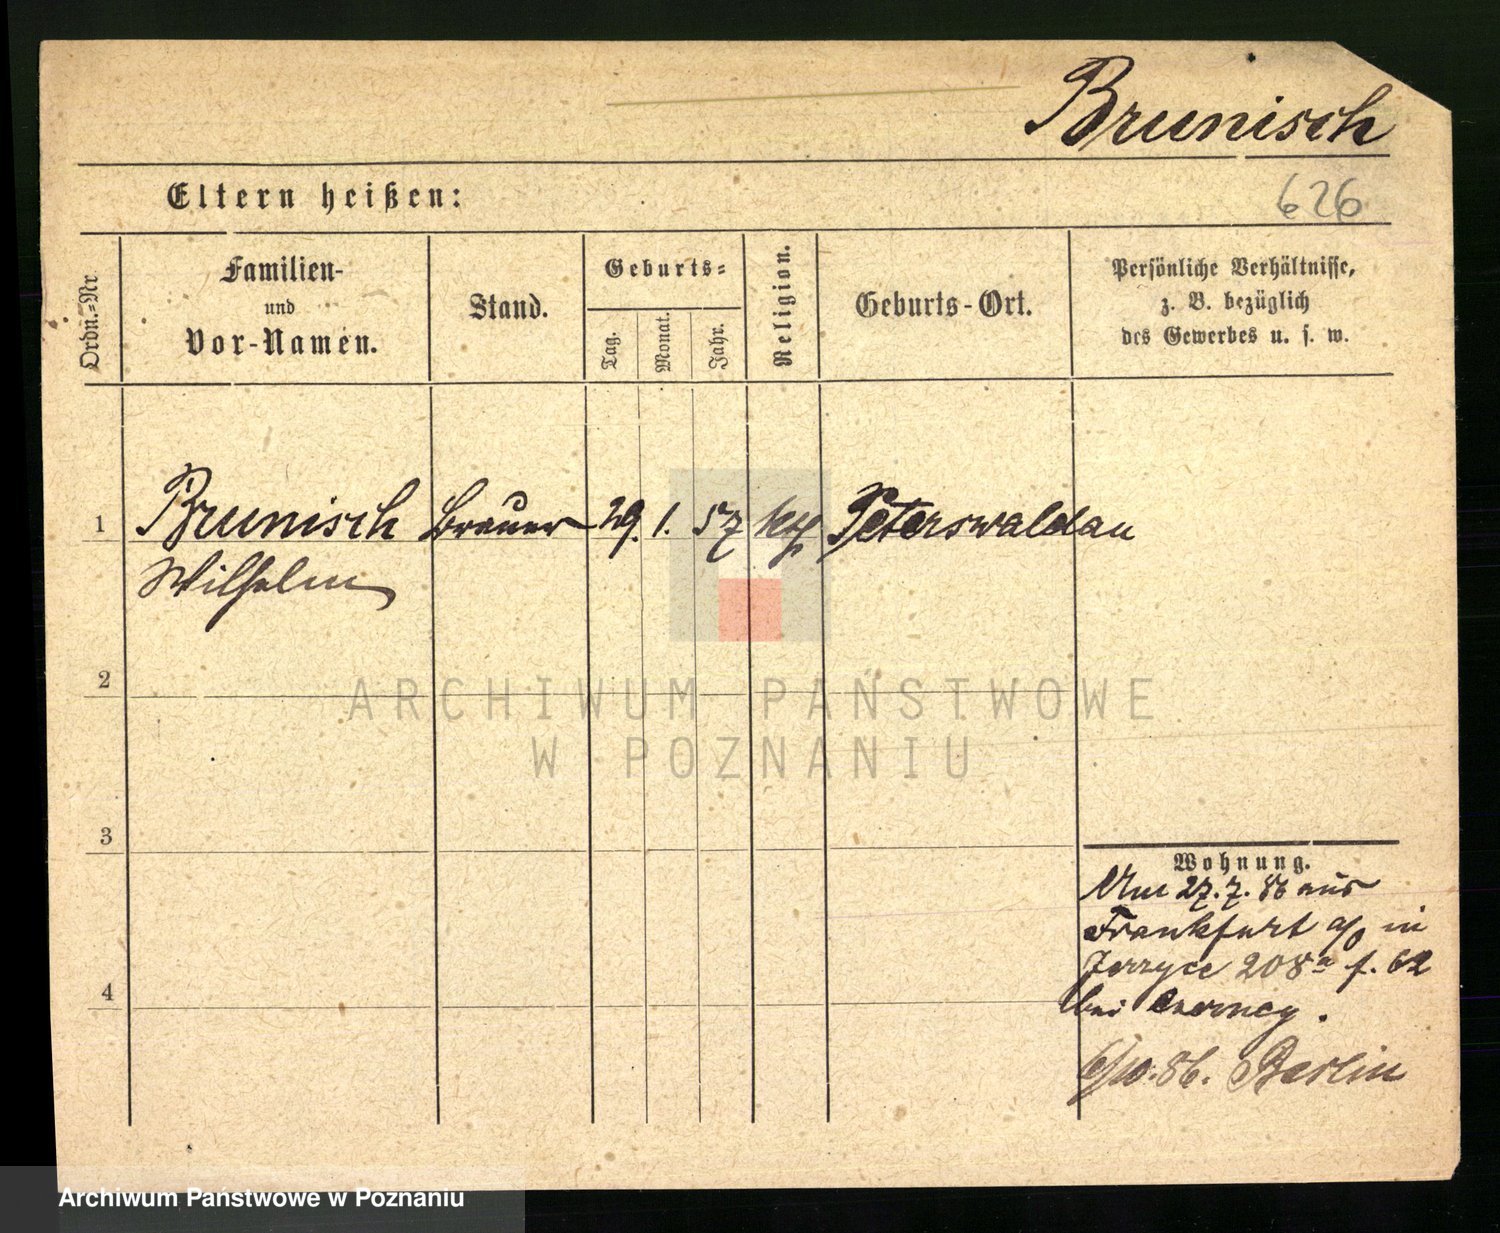 Brunisch
Eltern heißen:
626
Ordn.-Nr
Familien-
und
Vor-Namen.
Stand.
Geburts-
Tag.
Monat.
Jahr.
Religion.
Geburts-Ort.
Persönliche Verhältnisse,
z. B. bezüglich
des Gewerbes u. s. w.
1
Brunisch Brauer 29. 1. 57 Peterswaldau
Wilhelm
2
ARCHIWUM PAŃSTWOWE
W POZNANIU
3
Wohnung.
27. 7. 86 aus
Frankfurt a/o in
Jerzyce 208a f. 62
bei
6/10. 86. Berlin
4
Archiwum Państwowe w Poznaniu